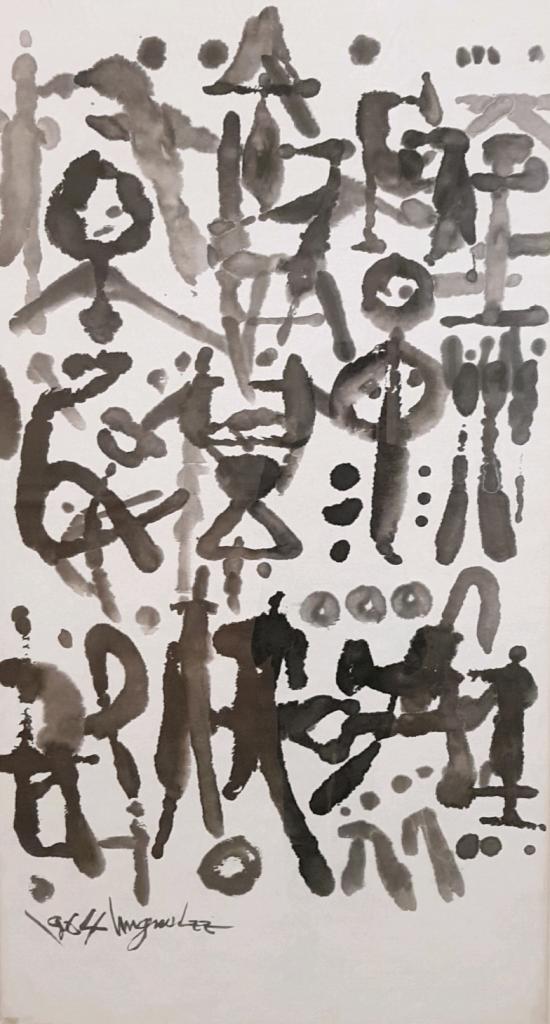 1964 UngnoLee